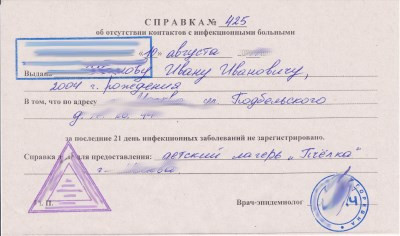 СПРАВКА № 425
об отсутствии контактов с инфекционными больными
"10" августа
Выдана Ивану Ивановичу,
2004 г. рождения
В том, что по адресу ул. Подбельского
д.
за последние 21 день инфекционных заболеваний не зарегистрировано.
Справка для предоставления: детский лагерь "Пчёлка"
г.
М. П.
Врач-эпидемиолог